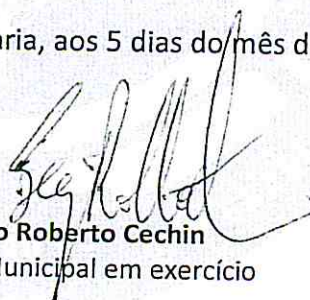 ria, aos 5 dias do mês d
o Roberto Cechin
Municipal em exercício